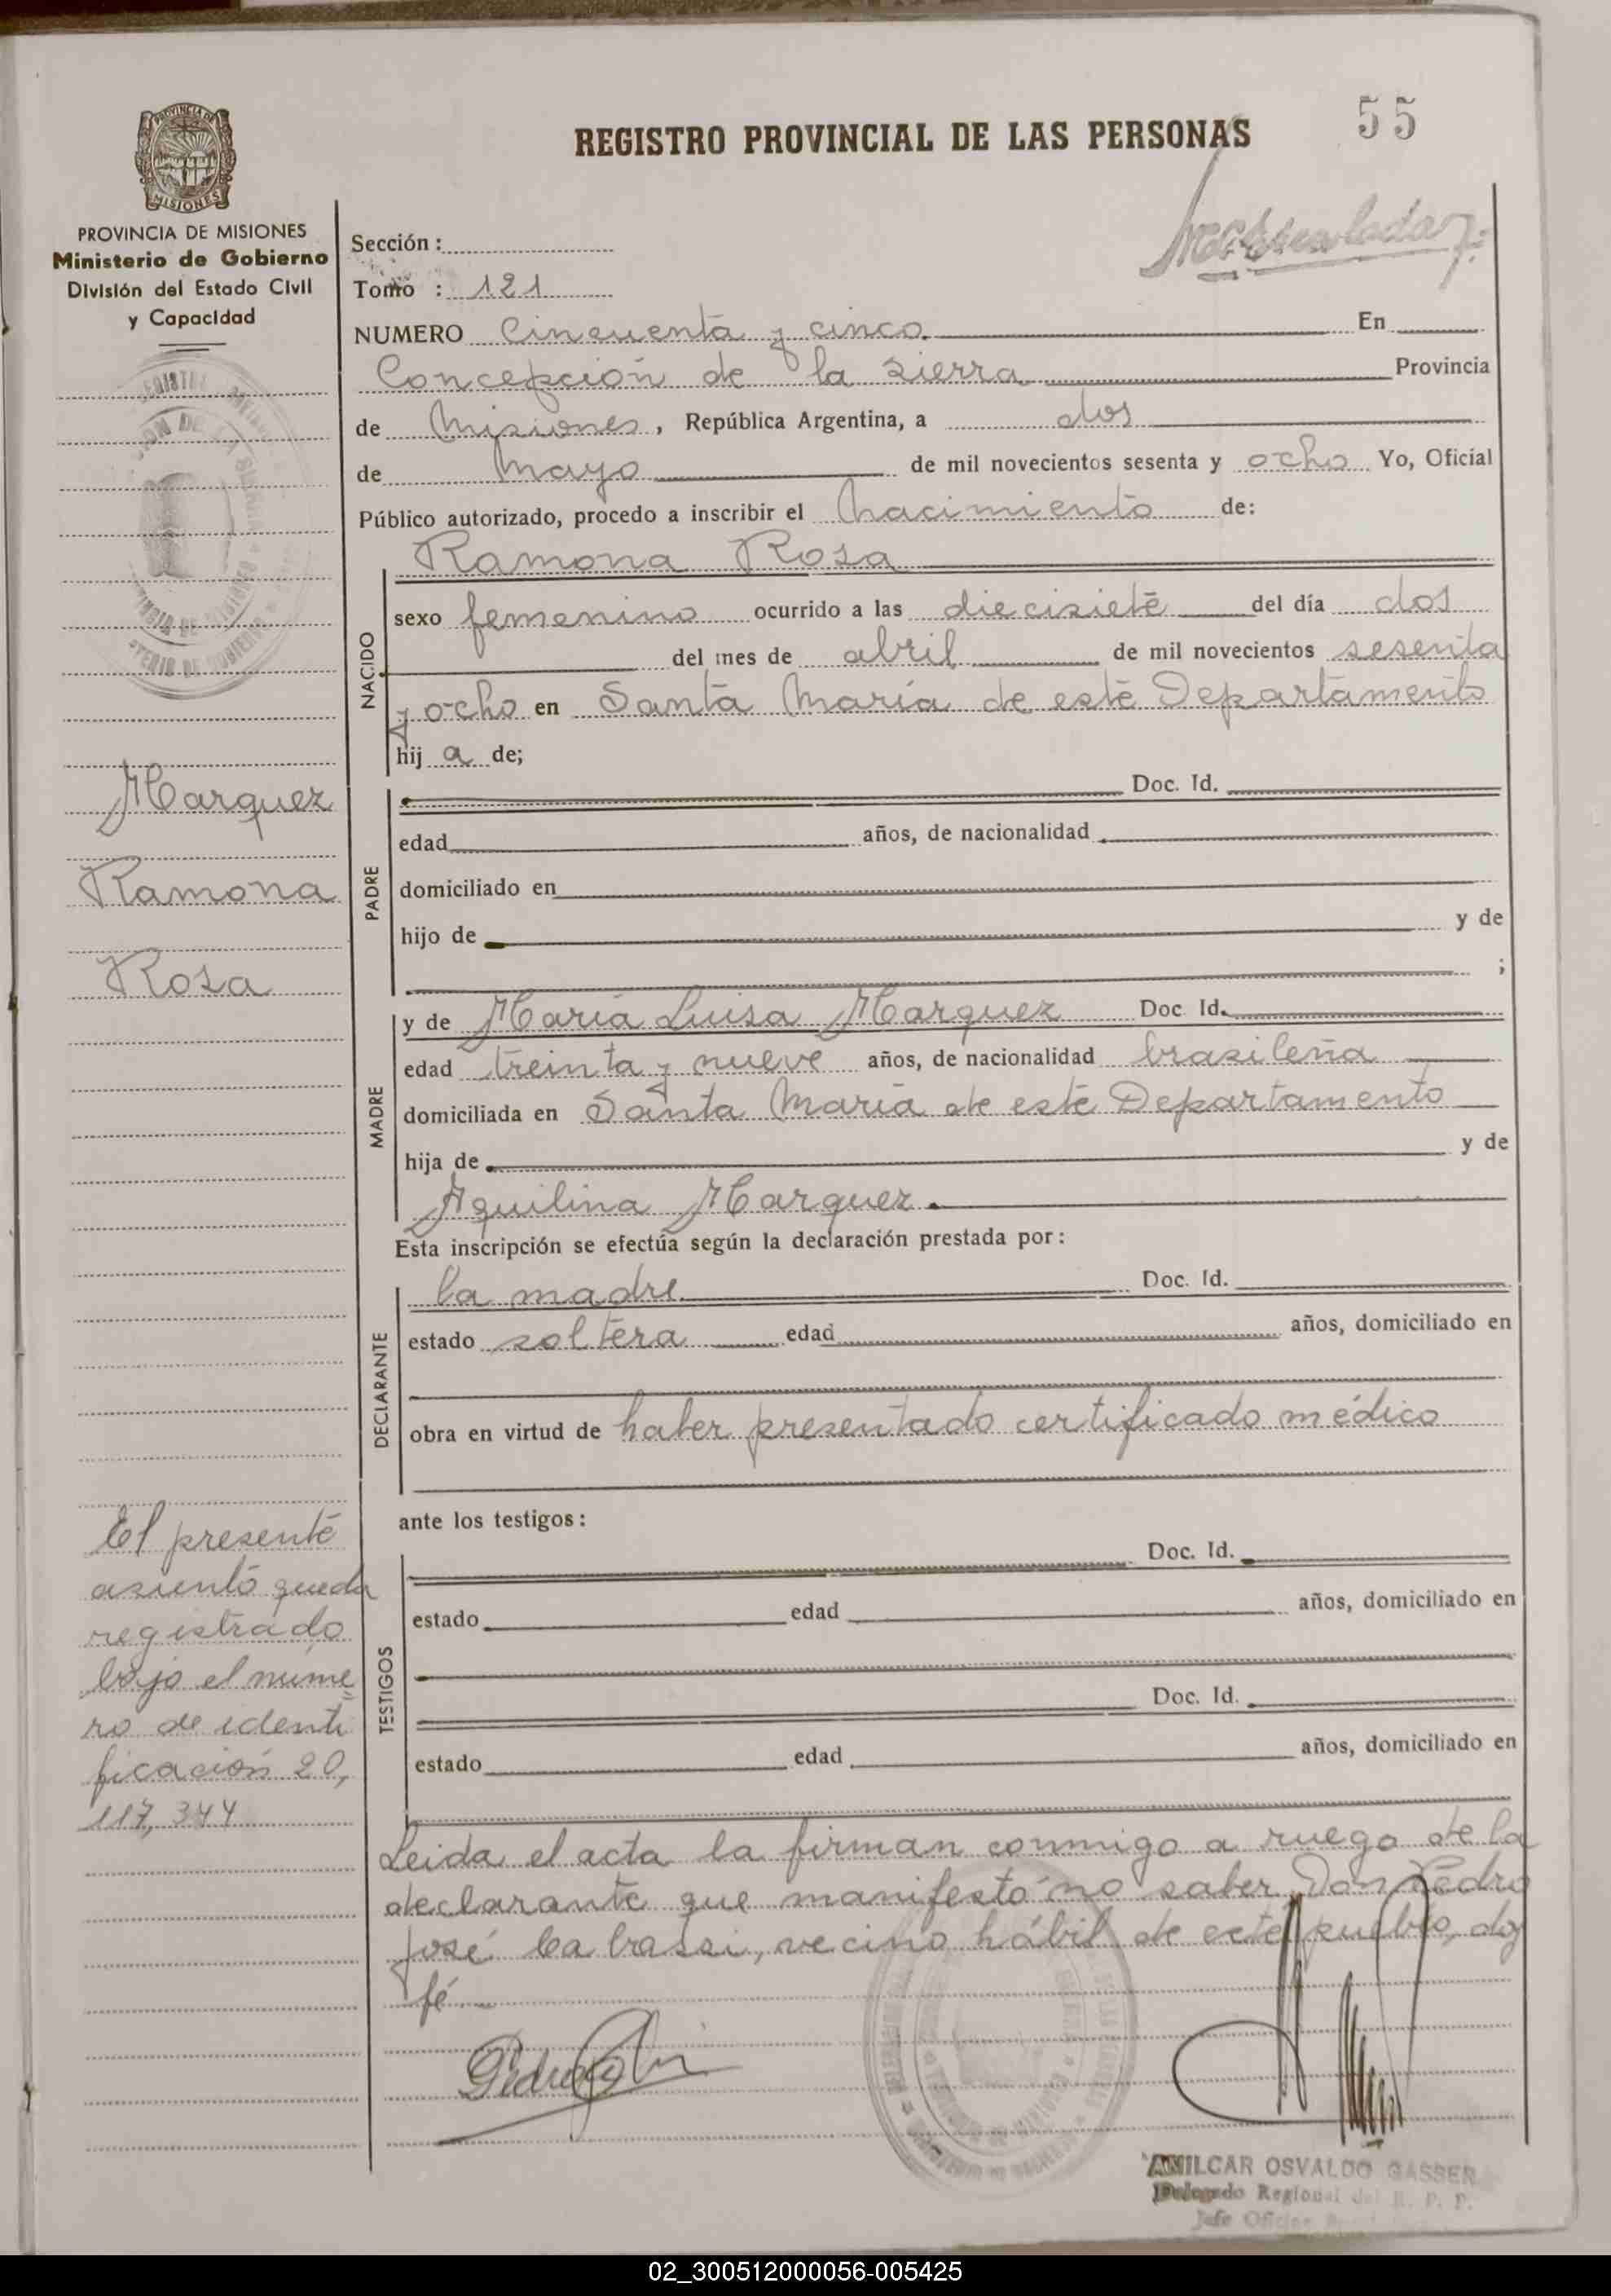 55
REGISTRO PROVINCIAL DE LAS PERSONAS
PROVINCIA DE MISIONES
MISIONES
PROVINCIA DE MISIONES
Ministerio de Gobierno
División del Estado Civil
y Capacidad
Sección :
Tomo : 121
NUMERO Cincuenta y cinco. En
Concepción de la Sierra Provincia
de Misiones, República Argentina, a dos
de mayo de mil novecientos sesenta y ocho Yo, Oficial
Público autorizado, procedo a inscribir el nacimiento de:
Ramona Rosa
NACIDO
sexo femenino ocurrido a las diecisiete del día dos
del mes de abril de mil novecientos sesenta
y ocho en Santa María de este Departamento
hij a de;
Marquez
Ramona
Rosa
PADRE
Doc. Id.
edad años, de nacionalidad
domiciliado en
hijo de y de
;
MADRE
y de María Luisa Marquez Doc Id.
edad treinta y nueve años, de nacionalidad brasileña
domiciliada en Santa María de este Departamento
hija de y de
Aquilina Marquez.
Esta inscripción se efectúa según la declaración prestada por:
DECLARANTE
la madre Doc. Id.
estado soltera edad años, domiciliado en
obra en virtud de haber presentado certificado médico
ante los testigos:
TESTIGOS
Doc. Id.
estado edad años, domiciliado en
Doc. Id.
estado edad años, domiciliado en
El presente
asiento queda
registrado
bajo el núme
ro de identi
ficación 20,
117,344
Leida el acta la firman conmigo a ruego de la
declarante que manifestó no saber, Don Pedro
José Labrassi, vecino hábil de este pueblo, doy
fé.
Pedro
AMILCAR OSVALDO GASSER
Delegado Regional del R. P. P.
Jefe
02_300512000056-005425